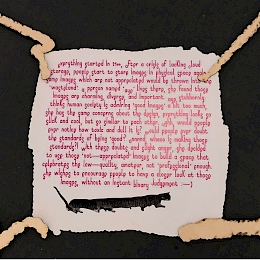 everything started in 2044, After a crisis of lacking cloud
storage, people start to store images in physical space again
and images which are not appreciated would be thrown into
'wasteland'. a person named 'ago' lives there, she found those
images are charming, diverse, and important. ago stubbornly
thinks human society is admiring 'good images' a bit too much.
she has the same concerns about the design, everything looks so
slick and cool, but so similar to each other. why would people
ever notice how toxic and dull it is? could people ever doubt
the standards of being 'good' and who is making those
standards? with these doubts and slight anger, she decided
to use those 'not—appreciated' images to build a space that
celebrates the low-quality, amateur, not 'professional' enough.
she wishes to encourage people to have a closer look at those
images, without an instant binary judgement :—)